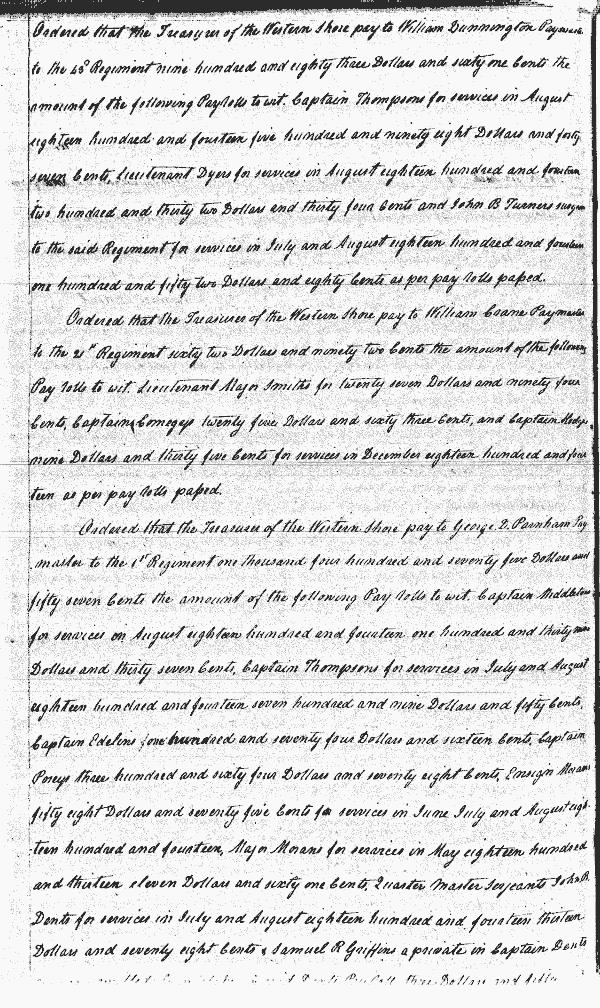 Ordered that the Treasurer of the Western Shore pay to William Dunnington Paymaster
to the 43d Regiment nine hundred and eighty three Dollars and sixty one Cents the
amount of the following Pay rolls to wit. Captain Thompsons for services in August
eighteen hundred and fourteen five hundred and ninety eight Dollars and forty
seven Cents, Lieutenant Dyers for services in August eighteen hundred and fourteen
two hundred and thirty two Dollars and thirty four Cents and John B Turners surgeon
to the said Regiment for services in July and August eighteen hundred and fourteen
one hundred and fifty two Dollars and eighty Cents as per pay rolls passed.
Ordered that the Treasurer of the Western Shore pay to William Crane Paymaster
to the 21st Regiment sixty two Dollars and ninety two Cents the amount of the following
Pay rolls to wit Lieutenant Major Smiths for twenty seven Dollars and ninety four
Cents, Captains Comegys twenty five Dollars and sixty three Cents, and Captain
nine Dollars and thirty five Cents for services in December eighteen hundred and four
teen as per pay rolls passed.
Ordered that the Treasurer of the Western Shore pay to George D. Parnham Pay
master to the 1st Regiment one thousand four hundred and seventy five Dollars and
fifty seven Cents the amount of the following Pay rolls to wit. Captain Middletons
for services in August eighteen hundred and fourteen one hundred and thirty nine
Dollars and thirty seven Cents, Captain Thompsons for services in July and August
eighteen hundred and fourteen seven hundred and nine Dollars and fifty Cents,
Captain Edelins one hundred and seventy four Dollars and sixteen Cents, Captain
Poseys three hundred and sixty four Dollars and seventy eight Cents, Ensign Morans
fifty eight Dollars and seventy five Cents for services in June July and August eigh
teen hundred and fourteen, Major Morans for services in May eighteen hundred
and thirteen eleven Dollars and sixty one Cents, Quarter Master Serjeants John B.
Dents for services in July and August eighteen hundred and fourteen thirteen
Dollars and seventy eight Cents & Samuel R Griffins a private in Captain Dents